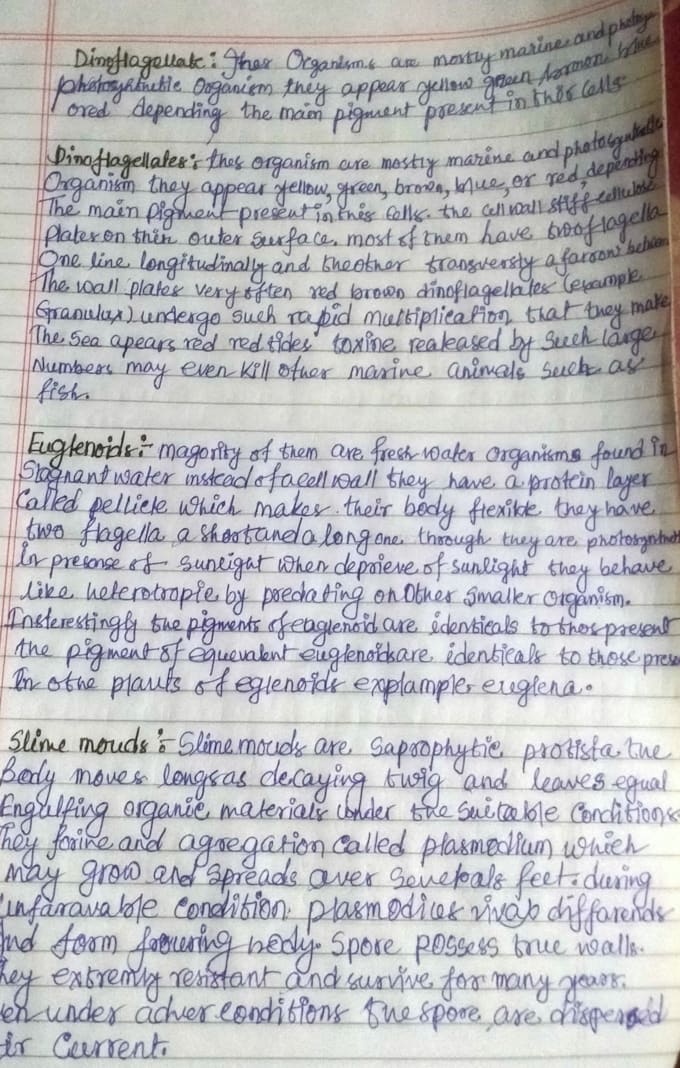 Dinoflagellate: Thes Organisms are mostly marine and photosy
photosynthetic Organism they appear yellow green brown blue
ored depending the main pigment present in this cells.
Dinoflagellates: thes organism are mostly marine and photosynthetic
Organism they appear yellow, green, brown, blue, or red, depending
The main pigment present in this Cells. the cell wall stiff cellulose
plates on thin outer surface. most of them have two flagella
One line longitudinally and the other transversty a faroom betwen
The wall plates very often red brown dinoflagellates (example
Granulax) undergo such rapid multiplication that they make
The Sea apears red red tides' toxine realeased by such large
Numbers may even kill other marine animals such as
fish.
Euglenoids:- magority of them are fresh water organisms found in
Stagnant water instead of a cell wall they have a protein layer
Called pellicle which makes their body flexible they have
two flagella a short and a long one. through they are photosynthet
in presense of suneigut when deprieve of sunlight they behave
like heterotropie by predating on Other smaller organism.
Insterestingly the pigments of euglenoid are identicals to thos present
the pigment of equevalent euglenoids are identicals to those prese
In othe plants of eglenoids explample euglena.
Slime mouds:- Slime mouds are saprophytic protista the
Body moves longsas decaying twig and leaves equal
Engulfing organic materials under the suitable Conditions
They forine and aggregation called plasmodium which
may grow and spreads over severals feet. during
unfaravable condition. plasmodices differends
And form fouuring body. spore possess true walls.
hey extremly resistant and survive for many years.
en under adver conditions the spore are dispersed
ir Current.